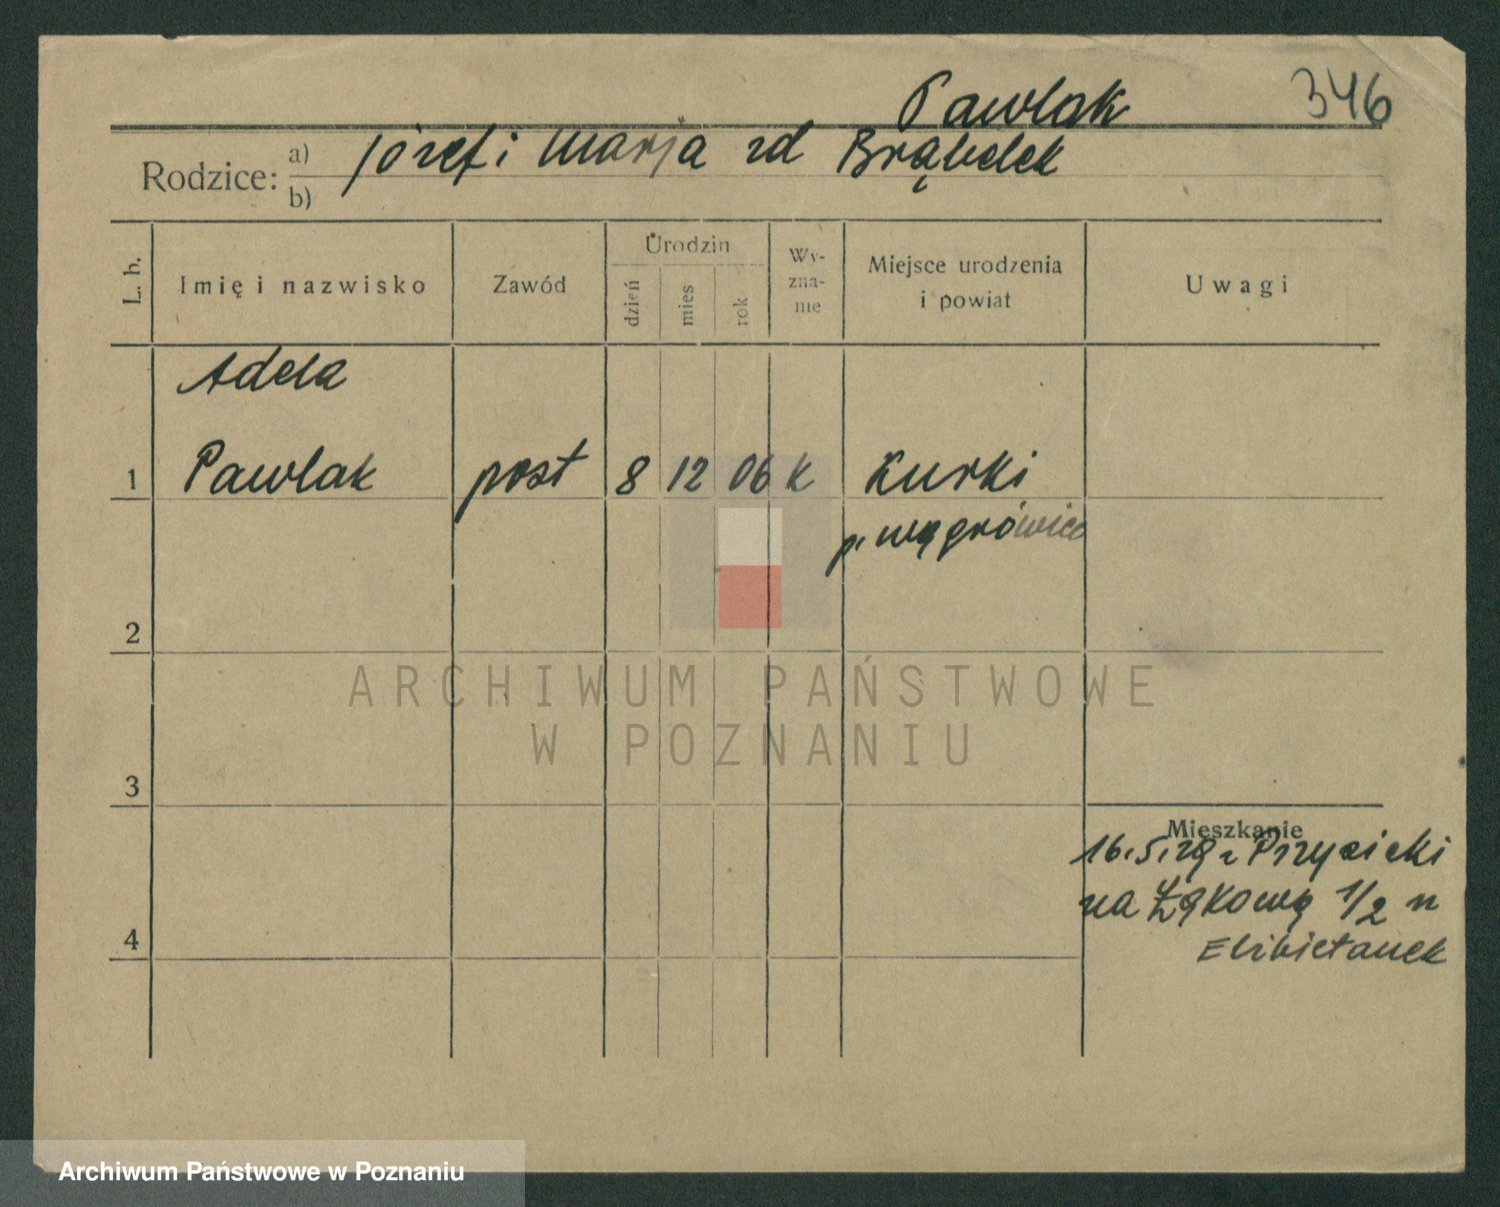 Pawlak 346
Rodzice: a) józef i Marja zd Brąbelek
b)
L. b. Imię i nazwisko Zawód Urodzin dzień mies rok Wy-zna-nie Miejsce urodzenia i powiat Uwagi
Adela
1 Pawlak post 8 12 06 k Kurki
p. wągrówiec
2
ARCHIWUM PAŃSTWOWE
W POZNANIU
3
Mieszkanie
16.5.29 z Przysiecki
na Łąkową 1/2 u
Elżbietanek
4
Archiwum Państwowe w Poznaniu